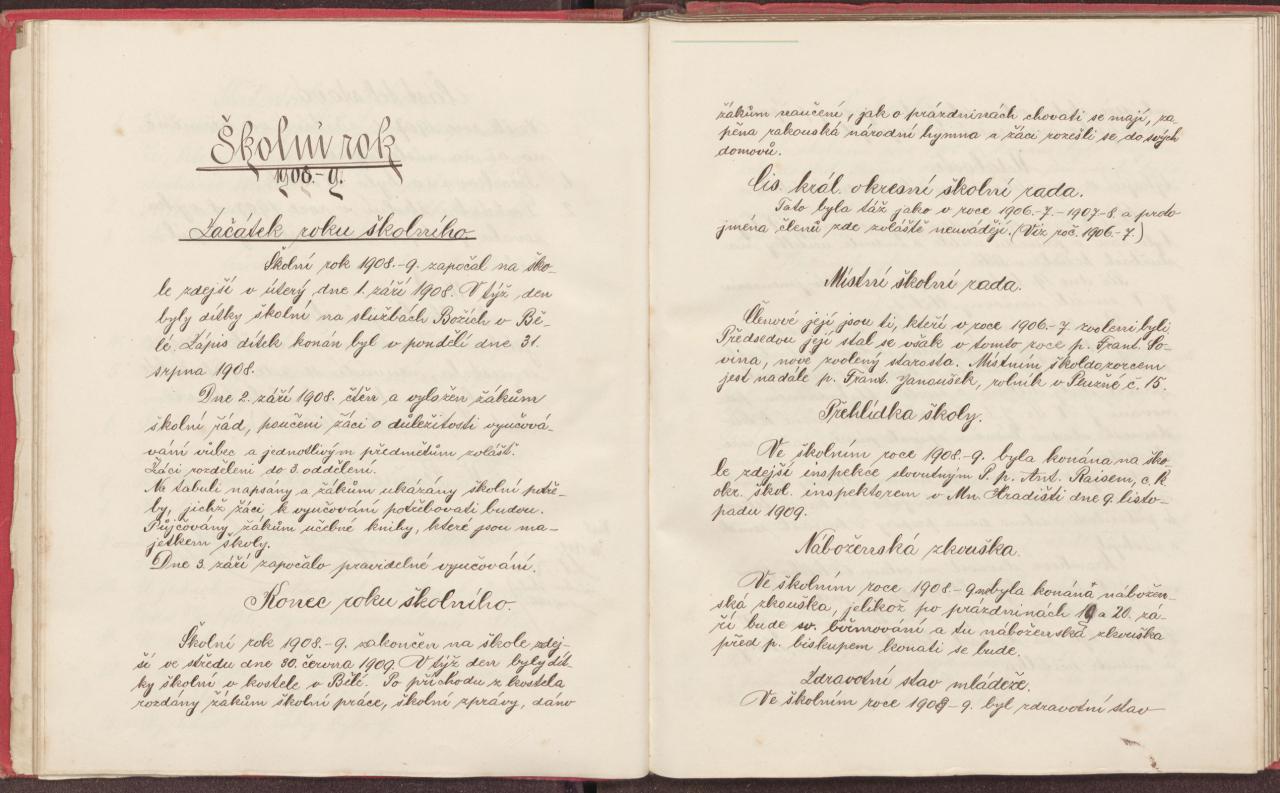 Školní rok
1908.-9.
Začátek roku školního.
Školní rok 1908.-9. započal na ško-
le zdejší v úterý dne 1. září 1908. V týž den
byly dítky školní na službách Božích v Bě-
lé. Zápis dítek konán byl v pondělí dne 31.
srpna 1908.
Dne 2. září 1908. čten a vyložen žákům
školní řád, poučeni žáci o důležitosti vyučová-
vání vůbec a jednotlivým předmětům zvlášť.
Žáci rozděleni do 3. oddělení.
Na tabuli napsány a žákům ukázány školní potře-
by, jichž žáci k vyučování potřebovati budou.
Půjčovány žákům učebné knihy, které jsou ma-
jetkem školy.
Dne 3. září započalo pravidelné vyučování.
Konec roku školního.
Školní rok 1908.-9. zakončen na škole zdej-
ší ve středu dne 30. června 1909. V týž den byly dít-
ky školní v kostele v Bělé. Po příchodu z kostela
rozdány žákům školní práce, školní zprávy, dáno
žákům naučení, jako o prázdninách chovati se mají, za-
pěna rakouská národní hymna a žáci rozešli se do svých
domovů.
Cis. král. okresní školní rada.
Tato byla táž jako v roce 1906.-7.-1907-8. a proto
jména členů zde zvláště neuvádějí. (Viz roč. 1906.-7.)
Místní školní rada.
Členové její jsou ti, kteří v roce 1906.-7. zvoleni byli.
Předsedou její stal se však v tomto roce p. Frant. So-
vina, nově zvolený starosta. Místním školdozorcem
jest nadále p. Frant. Janoušek, rolník v Plužné č. 15.
Přehlídka školy.
Ve školním roce 1908.-9. byla konána na ško-
le zdejší inspekce slovutným P. p. Ant. Raisem, c. k.
okr. škol. inspektorem v Mn. Hradišti dne 9. listo-
padu 1909.
Náboženská zkouška.
Ve školním roce 1908-9 nebyla konána nábožen-
ská zkouška, jelikož po prázdninách 19 a 20. zá-
ří bude sv. biřmování a tu náboženská zkouška
před p. biskupem konati se bude.
Zdravotní stav mládeže.
Ve školním roce 1908-9. byl zdravotní stav